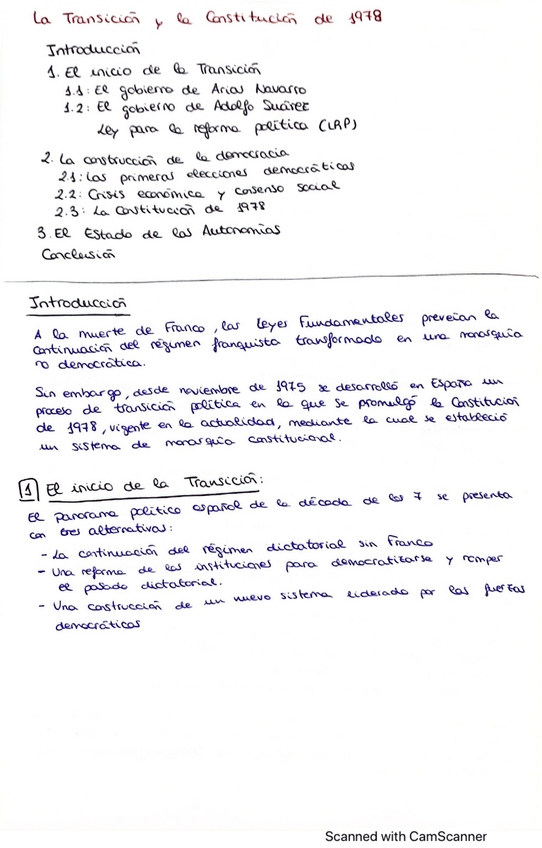 La Transición y la Constitución de 1978
Introducción
1. El inicio de la Transición
1.1: El gobierno de Arias Navarro
1.2: El gobierno de Adolfo Suárez
Ley para la reforma política (LRP)
2. La construcción de la democracia
2.1: Las primeras elecciones democráticas
2.2: Crisis económica y consenso social
2.3: La Constitución de 1978
3. El Estado de las Autonomías
Conclusión
Introducción
A la muerte de Franco, las Leyes Fundamentales preveían la
continuación del régimen franquista transformado en una monarquía
no democrática.
Sin embargo, desde noviembre de 1975 se desarrolló en España un
proceso de transición política en la que se promulgó la Constitución
de 1978, vigente en la actualidad, mediante la cual se estableció
un sistema de monarquía constitucional.
1 El inicio de la Transición:
El panorama político español de la década de los 7 se presenta
con tres alternativas:
- La continuación del régimen dictatorial sin Franco
- Una reforma de las instituciones para democratizarse y romper
el pasado dictatorial.
- Una construcción de un nuevo sistema liderado por las fuerzas
democráticas
Scanned with CamScanner